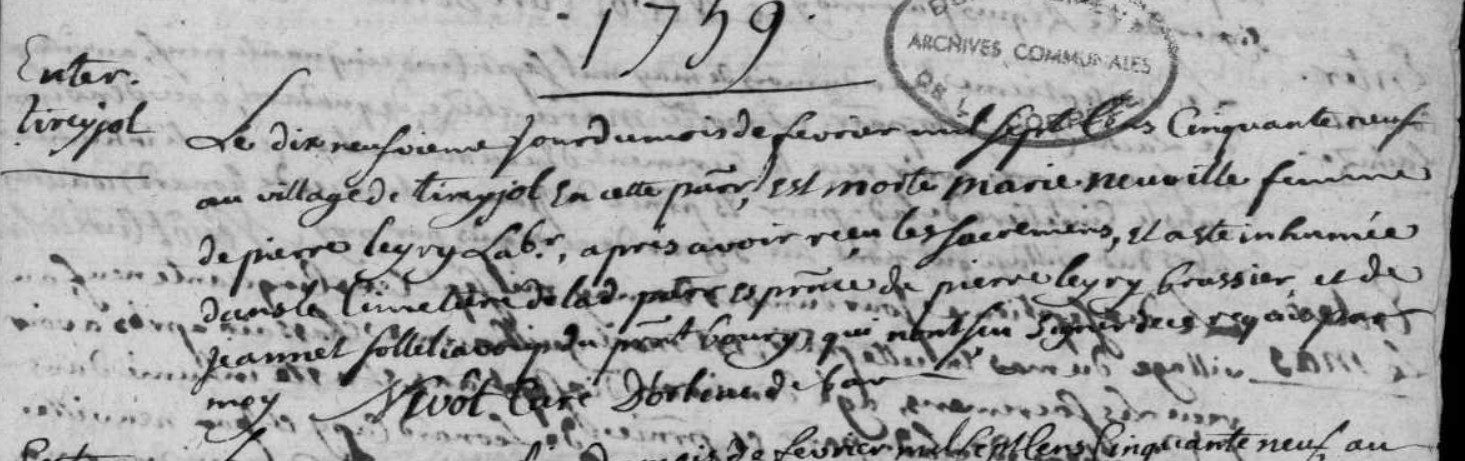 1759
ARCHIVES COMMUNALES
DE LA CORRÈZE
Enter.
tireyjol
Le dix neufvieme jour du mois de fevrier mil sept Cens Cinquante neuf
au village de tireyjol En cette parr, est morte marie neuville femme
de pierre leyry Labr., apres avoir reçu les sacremens, et a eté inhumée
dans le Cimetiere de lad. parre Es prnce de pierre leyry brassier, et de
jeannet du prnt bourg, qui n'ont sçu signer de ce requis par
moy Nivot Curé de bar
mois de fevrier mil sept Cens Cinquante neuf au